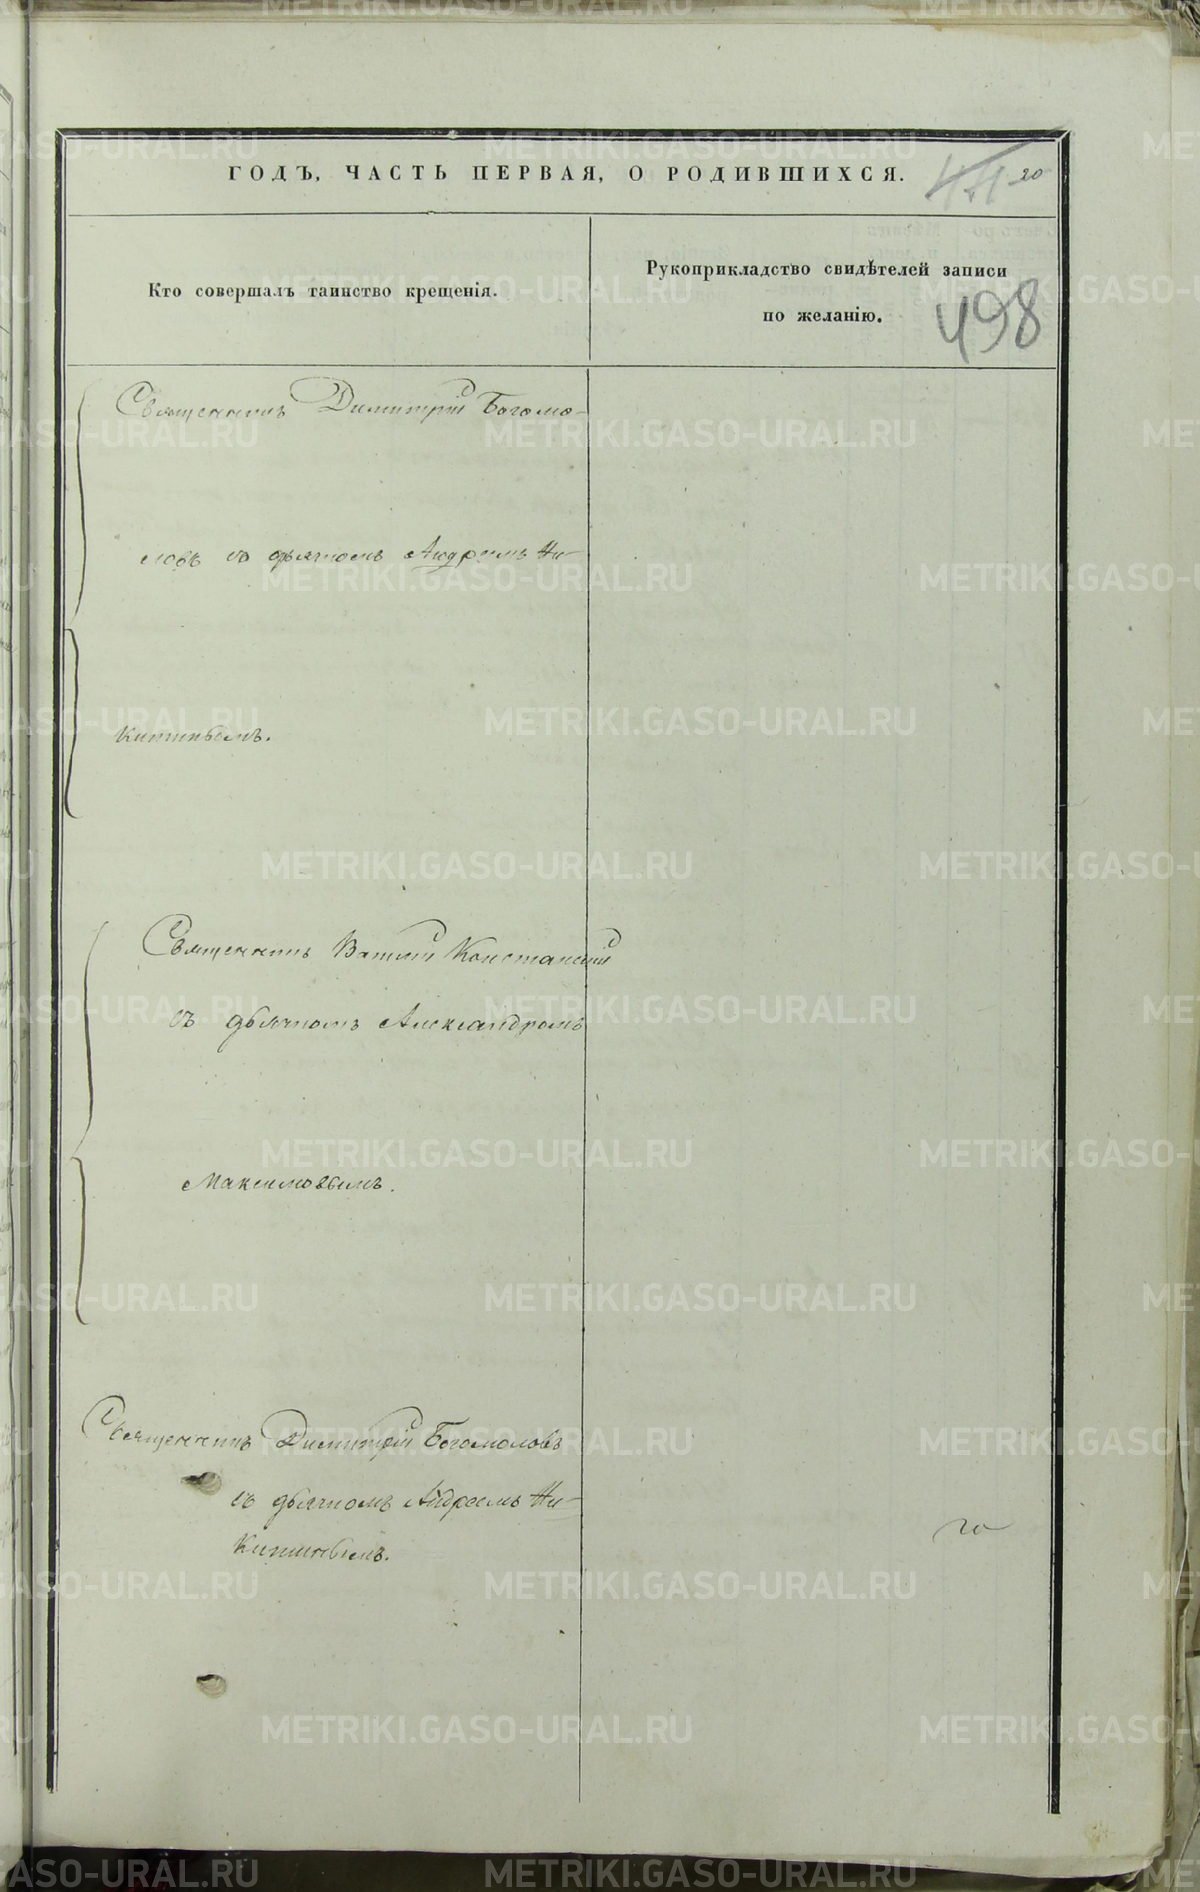 ГОДЪ, ЧАСТЬ ПЕРВАЯ, О РОДИВШИХСЯ.
20
Кто совершалъ таинство крещенія.
Рукоприкладство свидѣтелей записи
по желанію.
498
Священникъ Димитрій Богомо-
ловъ съ дьячкомъ Андреемъ Ни-
китинымъ.
Священникъ Василій
съ дьячкомъ Александромъ
Максимовымъ.
Священникъ Димитрій Богомоловъ
съ дьячкомъ Андреемъ Ни-
китинымъ.
METRIKI.GASO-URAL.RU